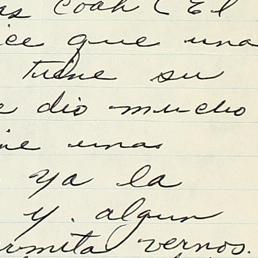 as Coah (El
ice que una
tiene su
e dio mucho
ne unas
ya la
y. algun
ermita vernos.